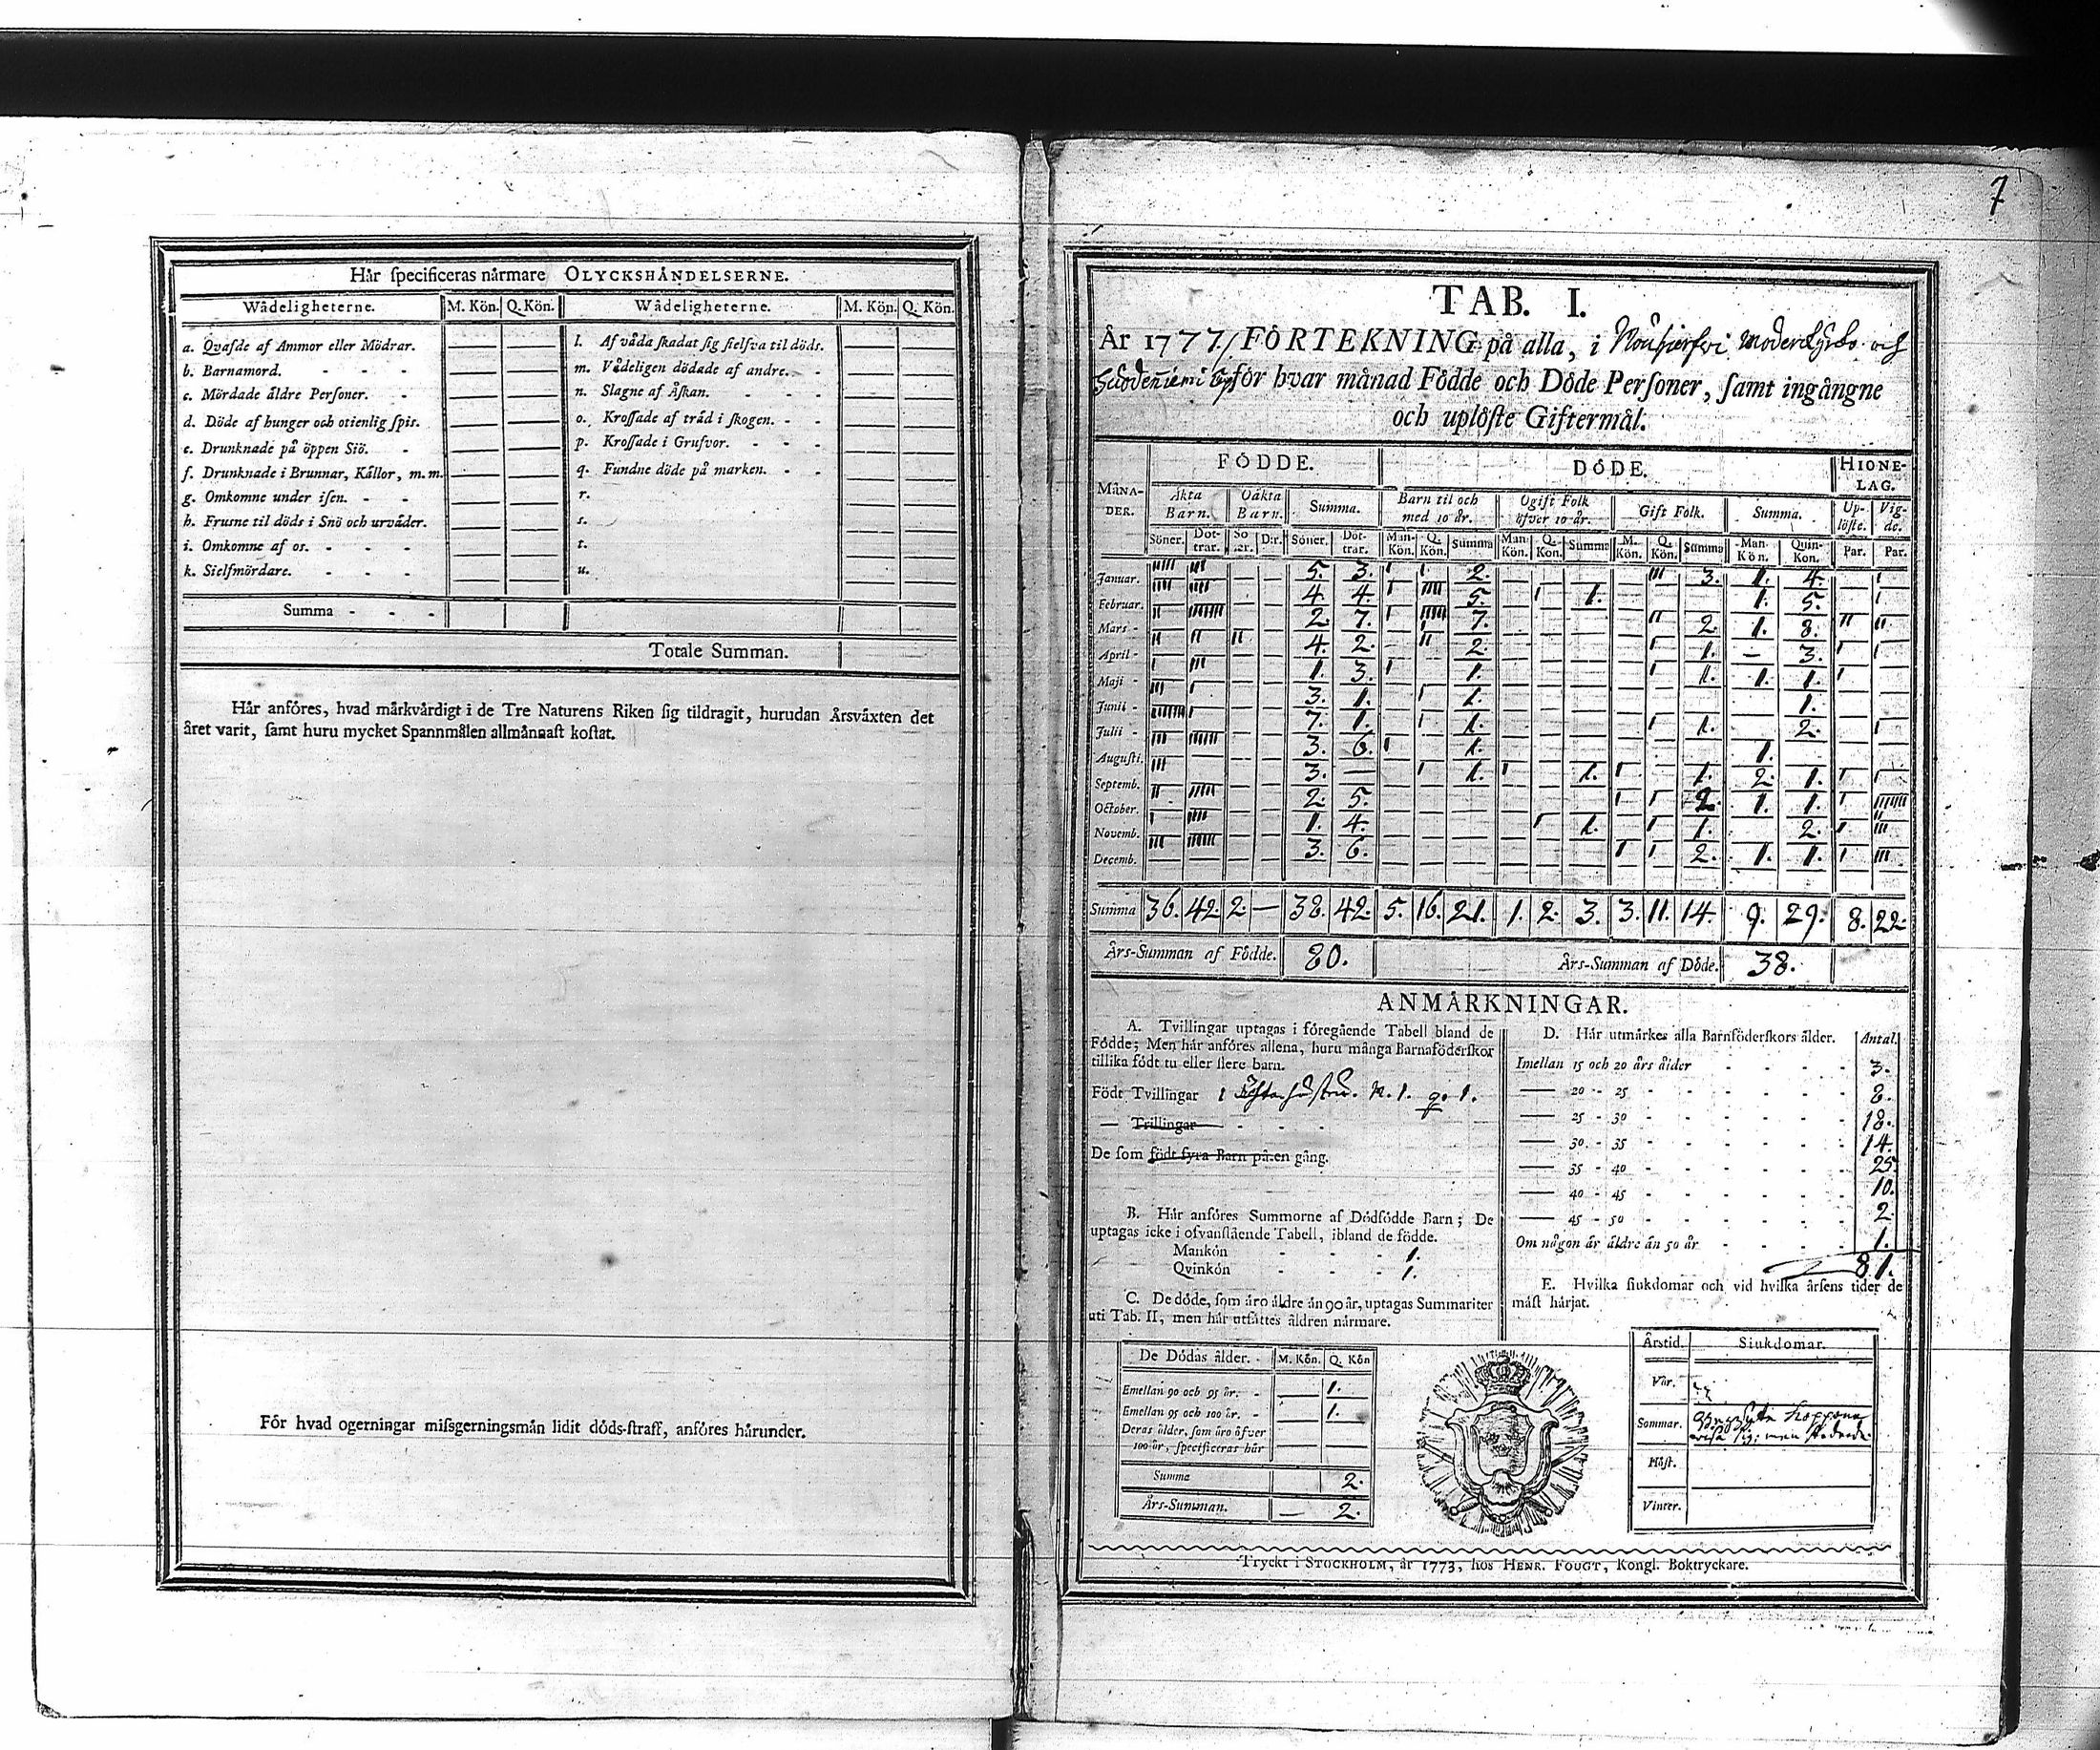 Hår specificeras nårmare OLYCKSHÅNDELSERNE.
Wådeligheterne. M. Kön. Q. Kön. Wådeligheterne. M. Kön. Q. Kön.
a. Qvafde af Ammor eller Mödrar. l. Af våda skadat sig sielfva til döds.
b. Barnamord. m. Vådeligen dödade af andre.
c. Mördade åldre Personer. n. Slagne af Åskan.
d. Döde af hunger och otienlig spis. o. Krossade af tråd i skogen.
e. Drunknade på öppen Siö. p. Krossade i Grufvor.
f. Drunknade i Brunnar, Kållor, m. m. q. Fundne döde på marken.
g. Omkomne under isen. r.
h. Frusne til döds i Snö och urvåder. s.
i. Omkomne af os. t.
k. Sielfmördare. u.
Summa
Totale Summan.
Hår anföres, hvad mårkvårdigt i de Tre Naturens Riken sig tildragit, hurudan Årsvåxten det
året varit, samt huru mycket Spannmålen allmånnast kostat.
För hvad ogerningar missgerningsmån lidit döds-straff, anföres hårunder.
7
TAB. I.
År 1777. FÖRTEKNING på alla, i Moderkyrko och
för hvar månad Födde och Döde Personer, samt ingångne
och uplöste Giftermål.
FÖDDE. DÖDE. HIONE-LAG.
MÅNADER. Åkta Barn. Oåkta Barn. Summa. Barn til och med 10 år. Ogift Folk öfver 10 år. Gift Folk. Summa. Uplöste. Vigde.
Söner. Döttrar. Söner. Dtr. Söner. Döttrar. Man-Kön. Q. Kön. Summa Man Kön. Q. Kon. Summa M. Kön. Q. Kön. Summa Man. Kön. Quin-Kon. Par. Par.
Januar. 5. 3. 2. 3. 1. 4.
Februar. 4. 4. 5. 1. 1. 5.
Mars 2. 7. 7. 2. 1. 8.
April 4. 2. 2. 1. — 3.
Maji 1. 3. 1. 1. 1. 1.
Junii 3. 1. 1. 1.
Julii 7. 1. 1. 1. 2.
Augusti. 3. 6. 1. 1.
Septemb. 3. — 1. 1. 1. 2. 1.
October. 2. 5. 2. 1. 1.
Novemb. 1. 4. 1. 1. 2.
Decemb. 3. 6. 2. 1. 1.
Summa 36. 42. 2. — 38. 42. 5. 16. 21. 1. 2. 3. 3. 11. 14. 9. 29. 8. 22.
Års-Summan af Födde. 80. Års-Summan af Döde. 38.
ANMÅRKNINGAR.
A. Tvillingar uptagas i föregående Tabell bland de
Födde; Men hår anföres allena, huru många Barnaföderskor
tillika födt tu eller flere barn.
Födt Tvillingar 1
— Trillingar
De som födt fyra Barn på en gång.
B. Hår anföres Summorne af Dödfödde Barn; De
uptagas icke i ofvanstående Tabell, ibland de födde.
Mankön 1.
Qvinkön 1.
C. De döde, som åro åldre ån 90 år, uptagas Summariter
uti Tab. II, men hår utsåttes åldren nårmare.
De Dödas ålder. M. Kön. Q. Kön
Emellan 90 och 95 år. — 1.
Emellan 95 och 100 år. — 1.
Deras ålder, som åro öfver
100 år, specificeras hår
Summa 2.
Års-Summan. — 2.
D. Hår utmårkes alla Barnföderskors ålder. Antal.
Imellan 15 och 20 års ålder 3.
20 - 25 8.
25 - 30 18.
30 - 35 14.
35 - 40 25.
40 - 45 10.
45 - 50 2.
Om någon år åldre ån 50 år 1.
81.
E. Hvilka siukdomar och vid hvilka årsens tider de
måst hårjat.
Årstid. Siukdomar.
Vår.
Sommar.
Höst.
Vinter.
Tryckt i STOCKHOLM, år 1773, hos HENR. FOUGT, Kongl. Boktryckare.